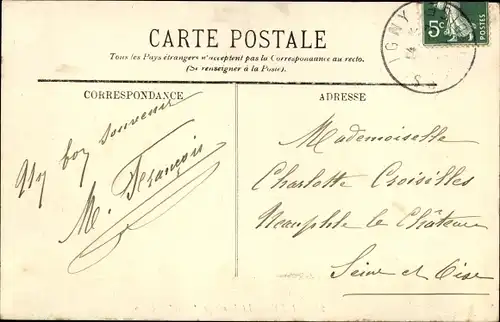 CARTE POSTALE
Tous les Pays étrangers n'acceptent pas la Correspondance au recto.
(Se renseigner à la Poste).
CORRESPONDANCE
Un bon souvenir
M. François
ADRESSE
Mademoiselle
Charlotte Croisilles
Neauphle le Château
Seine et Oise
IGNY
5c
POSTES